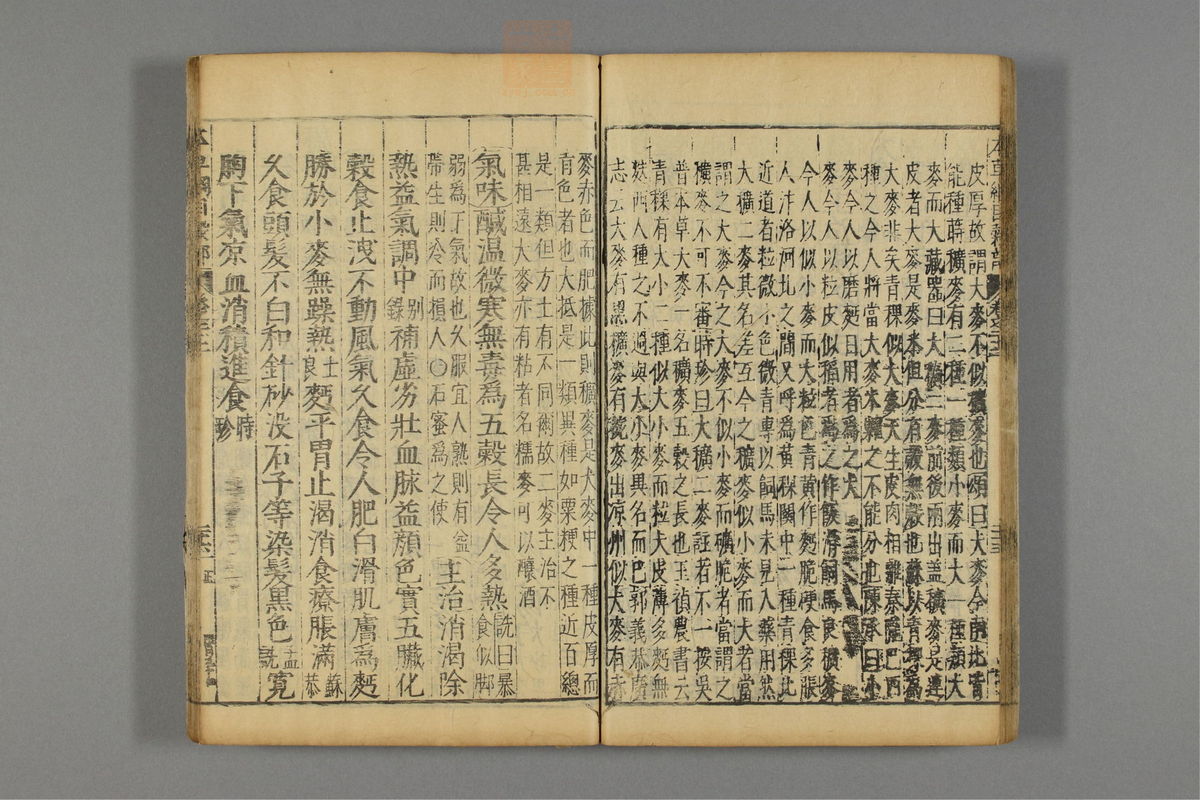 皮厚故謂大麥不似穬麥也頌曰大麥今南北皆
能種蒔穬麥有二種一種類小麥而大一種類大
麥而大藏器曰大穬二麥前後兩出蓋穬麥是連
皮者大麥是麥米但分有殼無殼也蘇以青稞為
大麥非矣青稞似大麥天生皮肉相離秦隴巴西
種之今人將當大麥米糶之不能分也陳承曰小
麥今人以磨麪日用者為之大
麥今人以粒皮似稻者為之作飯滑飼馬良穬麥
今人以似小麥而大粒色青黃作麪脆硬食多脹
人汴洛河北之間又呼為黃稞關中一種青稞比
近道者粒微小色微青專以飼馬未見入藥用然
大穬二麥其名差互今之穬麥似小麥而大者當
謂之大麥今之大麥不似小麥而礦脆者當謂之
穬麥不可不審時珍曰大穬二麥註者不一按吳
普本草大麥一名穬麥五穀之長也王禎農書云
青稞有大小二種似大小麥而粒大皮薄多麪無
麩西人種之不過與大小麥異名而巴郭義恭廣
志云大麥有黑穬麥有䴬麥出涼州似大麥有赤
麥赤色而肥據此則穬麥是大麥中一種皮厚而
有色者也大抵是一類異種如粟粳之種近百總
是一類但方土有不同爾故二麥主治不
甚相遠大麥亦有粘者名糯麥可以釀酒
氣味鹹溫微寒無毒為五穀長令人多熱詵曰暴食似脚
弱為下氣故也久服宜人熟則有益帶生則冷而損人〇石蜜為之使主治消渴除
熱益氣調中別錄補虛劣壯血脉益顏色實五臟化
穀食止洩不動風氣久食令人肥白滑肌膚為麪
勝於小麥無躁熱士良麪平胃止渴消食療脹滿蘇恭
久食頭髮不白和針砂没石子等染髮黑色孟詵寬
胷下氣凉血消積進食時珍